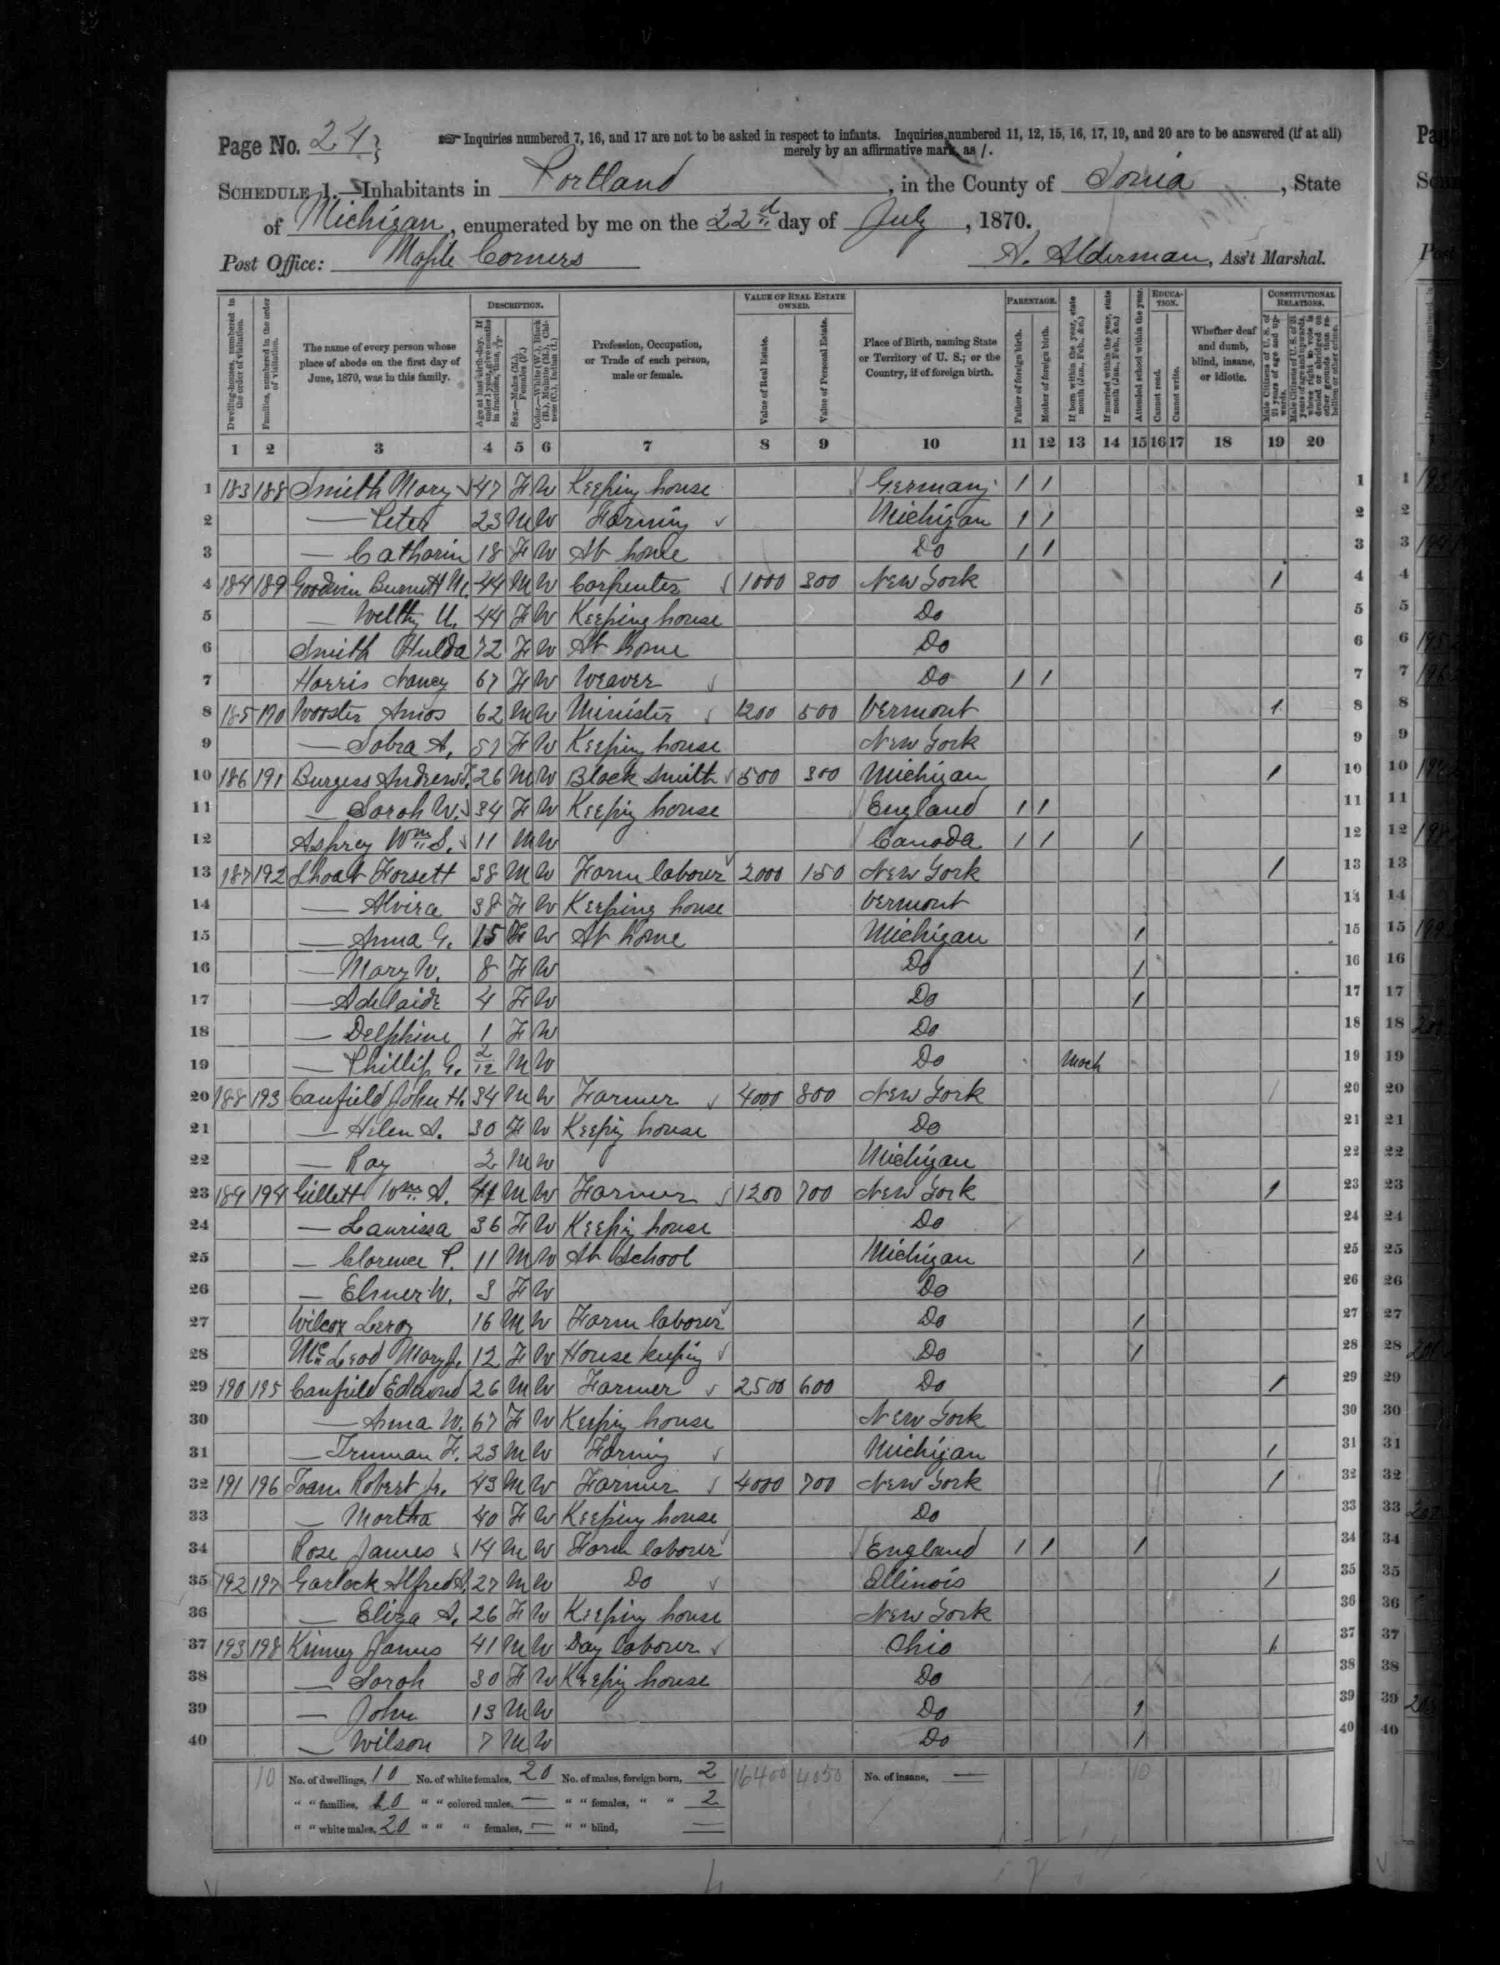 Page No. 24
Inquiries numbered 7, 16, and 17 are not to be asked in respect to infants. Inquiries numbered 11, 12, 15, 16, 17, 19, and 20 are to be answered (if at all)
merely by an affirmative mark, as /.
SCHEDULE 1.—Inhabitants in Portland, in the County of Ionia, State
of Michigan, enumerated by me on the 22d day of July, 1870.
Post Office: Maple Corners A. Alderman, Ass't Marshal.
Dwelling-houses, numbered in the order of visitation.
Families, numbered in the order of visitation.
The name of every person whose place of abode on the first day of June, 1870, was in this family.
DESCRIPTION.
Age at last birth-day. If under 1 year, give months in fractions, thus, 3/12.
Sex.—Males (M.), Females (F.)
Color.—White (W.), Black (B.), Mulatto (M.), Chinese (C.), Indian (I.)
Profession, Occupation, or Trade of each person, male or female.
VALUE OF REAL ESTATE OWNED.
Value of Real Estate.
Value of Personal Estate.
Place of Birth, naming State or Territory of U. S.; or the Country, if of foreign birth.
PARENTAGE.
Father of foreign birth.
Mother of foreign birth.
If born within the year, state month (Jan., Feb., &c.)
If married within the year, state month (Jan., Feb., &c.)
Attended school within the year.
EDUCATION.
Cannot read.
Cannot write.
Whether deaf and dumb, blind, insane, or idiotic.
CONSTITUTIONAL RELATIONS.
Male Citizens of U. S. of 21 years of age and upwards.
Male Citizens of U. S. of 21 years of age and upwards, whose right to vote is denied or abridged on other grounds than rebellion or other crime.
1 2 3 4 5 6 7 8 9 10 11 12 13 14 15 16 17 18 19 20
1 183 188 Smith Mary 47 F W Keeping house Germany / / 1
2 — Peter 23 M W Farming Michigan / / 2
3 — Catharin 18 F W At home Do / / 3
4 184 189 Goodwin Burnett M. 44 M W Carpenter 1000 300 New York / 4
5 — Welthy U. 44 F W Keeping house Do 5
6 Smith Hulda 72 F W At home Do 6
7 Harris Nancy 67 F W Weaver Do / / 7
8 185 190 Wooster Amos 62 M W Minister 1200 500 Vermont / 8
9 — Sobra A. 57 F W Keeping house New York 9
10 186 191 Burgess Andrew F. 26 M W Black Smith 500 300 Michigan / 10
11 — Sarah W. 34 F W Keepig house England / / 11
12 Asprey Wm S. 11 M W Canada / / / 12
13 187 192 Forsett 38 M W Farm laborer 2000 150 New York / 13
14 — Alvira 38 F W Keeping house Vermont 14
15 — Anna G. 15 F W At home Michigan / 15
16 — Mary W. 8 F W Do / 16
17 — Adelaide 4 F W Do / 17
18 — Delphine 1 F W Do 18
19 — Phillip G. 2/12 M W Do March 19
20 188 193 Canfield John H. 34 M W Farmer 4000 800 New York / 20
21 — Helen A. 30 F W Keepig house Do 21
22 — Ray 2 M W Michigan 22
23 189 194 Gillett Wm A. 41 M W Farmer 1200 700 New York / 23
24 — Laurissa 36 F W Keepig house Do 24
25 — Clarence P. 11 M W At School Michigan / 25
26 — Elmer W. 3 F W Do 26
27 Wilcox Leroy 16 M W Farm laborer Do / 27
28 McLeod Mary J. 12 F W House keepig Do / 28
29 190 195 Canfield Edmond 26 M W Farmer 2500 600 Do / 29
30 — Anna W. 67 F W Keepig house New York 30
31 — Truman F. 23 M W Farming Michigan / 31
32 191 196 Toan Robert Jr. 43 M W Farmer 4000 700 New York / 32
33 — Martha 40 F W Keeping house Do 33
34 Rose James 14 M W Farm laborer England / / / 34
35 192 197 Garlock Alfred A. 27 M W Do Illinois / 35
36 — Eliza A. 26 F W Keeping house New York 36
37 193 198 Kinney James 41 M W Day laborer Ohio / 37
38 — Sarah 30 F W Keepig house Do 38
39 — John 13 M W Do / 39
40 — Wilson 7 M W Do / 40
10 No. of dwellings, 10 No. of white females, 20 No. of males, foreign born, 2 16400 4050 No. of insane, — 10
" " families, 10 " " colored males, — " " females, " " 2
" " white males, 20 " " " females, — " " blind, —